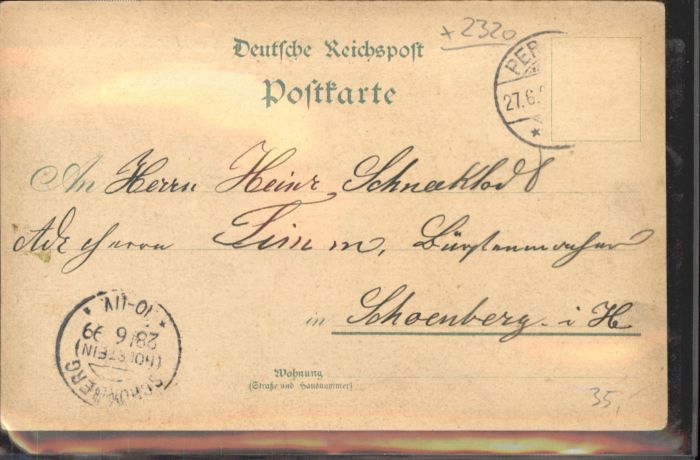 * 2320
Deutsche Reichspost
Postkarte
27.6.
An Herrn Heinr. Schneekloth
Adr Herrn Timm, Bürstenmacher
in Schoenberg i H
28/6 99
10-11V
(HOLSTEIN)
SCHÖNBERG
Wohnung
(Straße und Hausnummer)
35,-